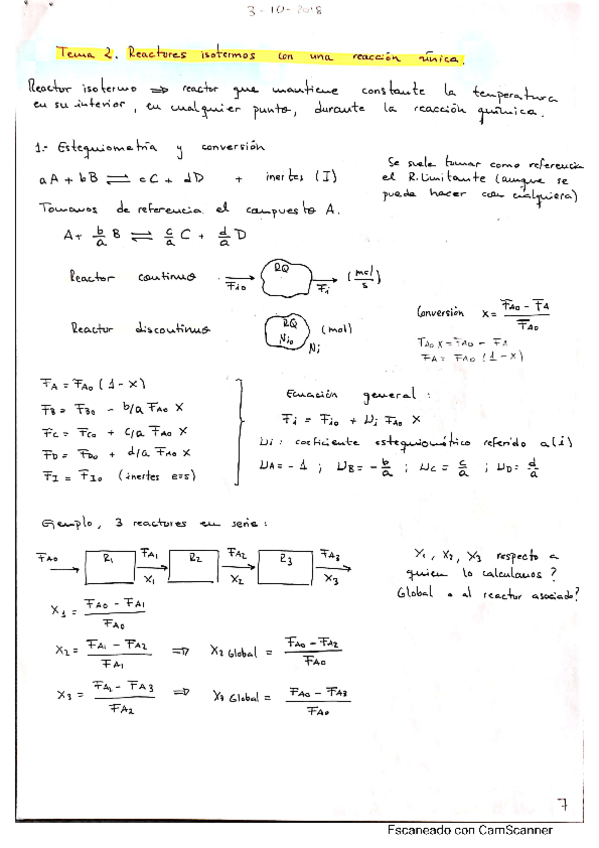 3-10-2018
Tema 2. Reactores isotermos con una reacción única.
Reactor isotermo ⇒ reactor que mantiene constante la temperatura
en su interior, en cualquier punto, durante la reacción química.
1.- Estequiometría y conversión
aA + bB ⇌ cC + dD + inertes (I)
Se suele tomar como referencia
el R. Limitante (aunque se
puede hacer con cualquiera)
Tomamos de referencia el compuesto A.
A + b/a B ⇌ c/a C + d/a D
Reactor continuo Fi0 RQ Fi (mol/s)
Conversión X = (FA0 - FA)/FA0
Reactor discontinuo RQ Ni0 Ni (mol)
FA0 X = FA0 - FA
FA = FA0 (1 - X)
FA = FA0 (1 - X)
FB = FB0 - b/a FA0 X
FC = FC0 + c/a FA0 X
FD = FD0 + d/a FA0 X
FI = FI0 (inertes e=s)
Ecuación general:
Fi = Fi0 + νi FA0 X
νi: coeficiente estequiométrico referido a (i)
νA = -1 ; νB = -b/a ; νC = c/a ; νD = d/a
Ejemplo, 3 reactores en serie:
FA0 R1 FA1 R2 FA2 R3 FA3
X1 X2 X3
X1, X2, X3 respecto a
quien lo calculamos?
Global o al reactor asociado?
X1 = (FA0 - FA1)/FA0
X2 = (FA1 - FA2)/FA1 ⇒ X2 Global = (FA0 - FA2)/FA0
X3 = (FA2 - FA3)/FA2 ⇒ X3 Global = (FA0 - FA3)/FA0
7
Escaneado con CamScanner